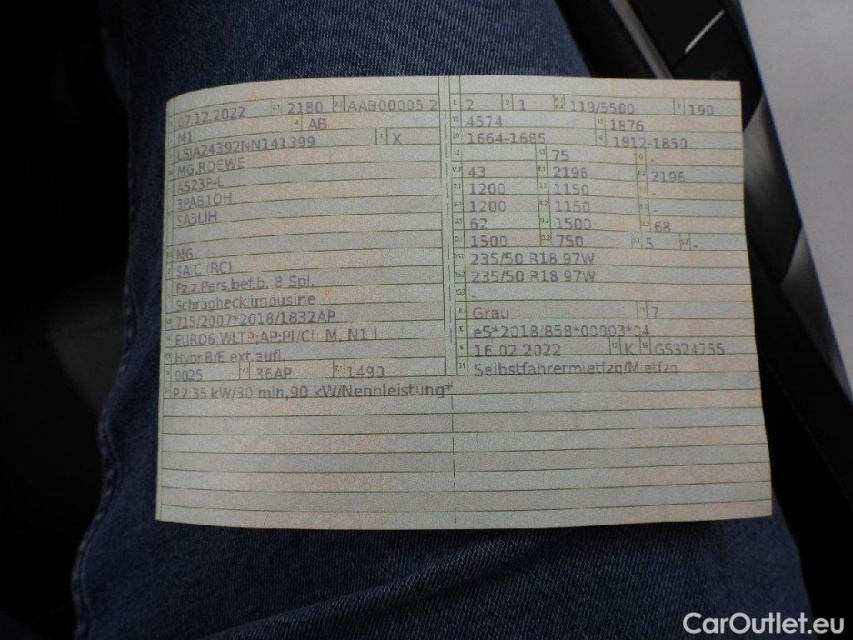 07.12.2022 2180 AAB00005 2
M1 AB
LSJA24392NN141399 X
MG ROEWE
AS23P-L
3PAB1OH
SA5UH
MG
SAIC (RC)
Fz.z.Pers.bef.b. 8 Spl.
Schräghecklimousine
715/2007*2018/1832AP
EURO6;WLTP;AP;PI/CI: M, N1 I
Hybr.B/E ext.aufl.
0025 36AP 1490
P.2:35 kW/30 min,90 kW/Nennleistung*
2 1 119/5500 190
4574 1876
1664-1685 1812-1850
75 -
43 2196 2196
1200 1150 -
1200 1150 -
62 1500 68
1500 750 5 -
235/50 R18 97W
235/50 R18 97W
-
Grau 7
e5*2018/858*00003*04
16.02.2022 K GS324755
Selbstfahrermietfzg/Mietfzg
CarOutlet.eu